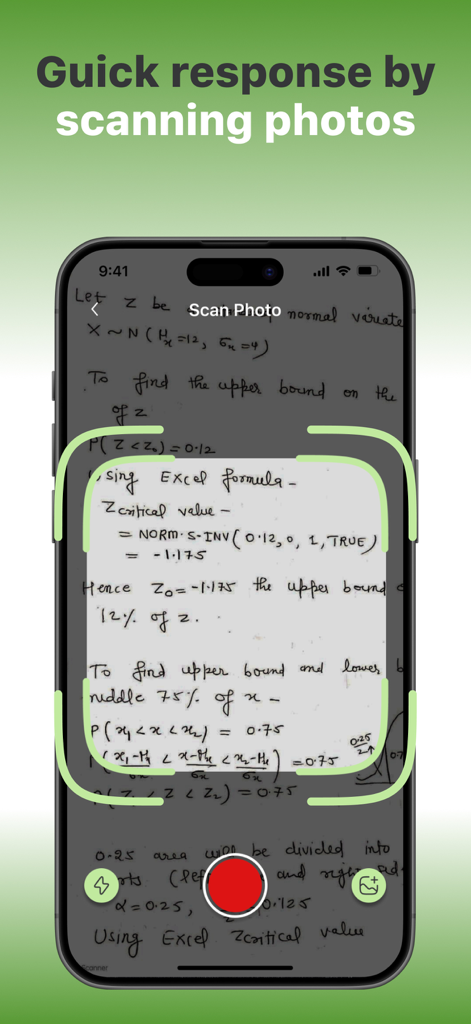 Guick response by
scanning photos
9:41
Scan Photo
Let Z be normal variate
X ~ N ( μx =12, σx =4)
To find the upper bound on the
of z
P( Z < Z₀) = 0.12
Using Excel formula -
Zcritical value -
= NORM.S.INV( 0.12, 0, 1, TRUE)
= -1.175
Hence Z₀ = -1.175 the upper bound
12% of z.
To find upper bound and lower b
middle 75% of x -
P( x₁ < x < x₂) = 0.75
P( x₁-μx / σx < x-μx / σx < x₂-μx / σx ) = 0.75
0.25/2
P( Z₁ < Z < Z₂) = 0.75
0.25 area will be divided into
and right
α = 0.25, 0.125
Using Excel Zcritical value